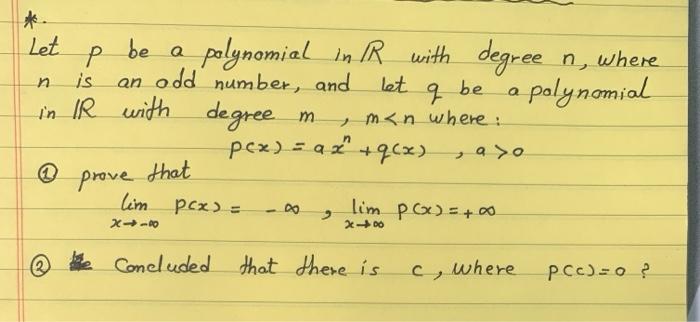 *.
Let p be a polynomial in IR with degree n, where
n is an odd number, and let q be a polynomial
in IR with degree m , m<n where :
p(x) = a xⁿ + q(x) , a >0
① prove that
lim p(x) = - ∞ , lim p(x) = + ∞
x→-∞ x→∞
② Concluded that there is c, where p(c)=0 ?